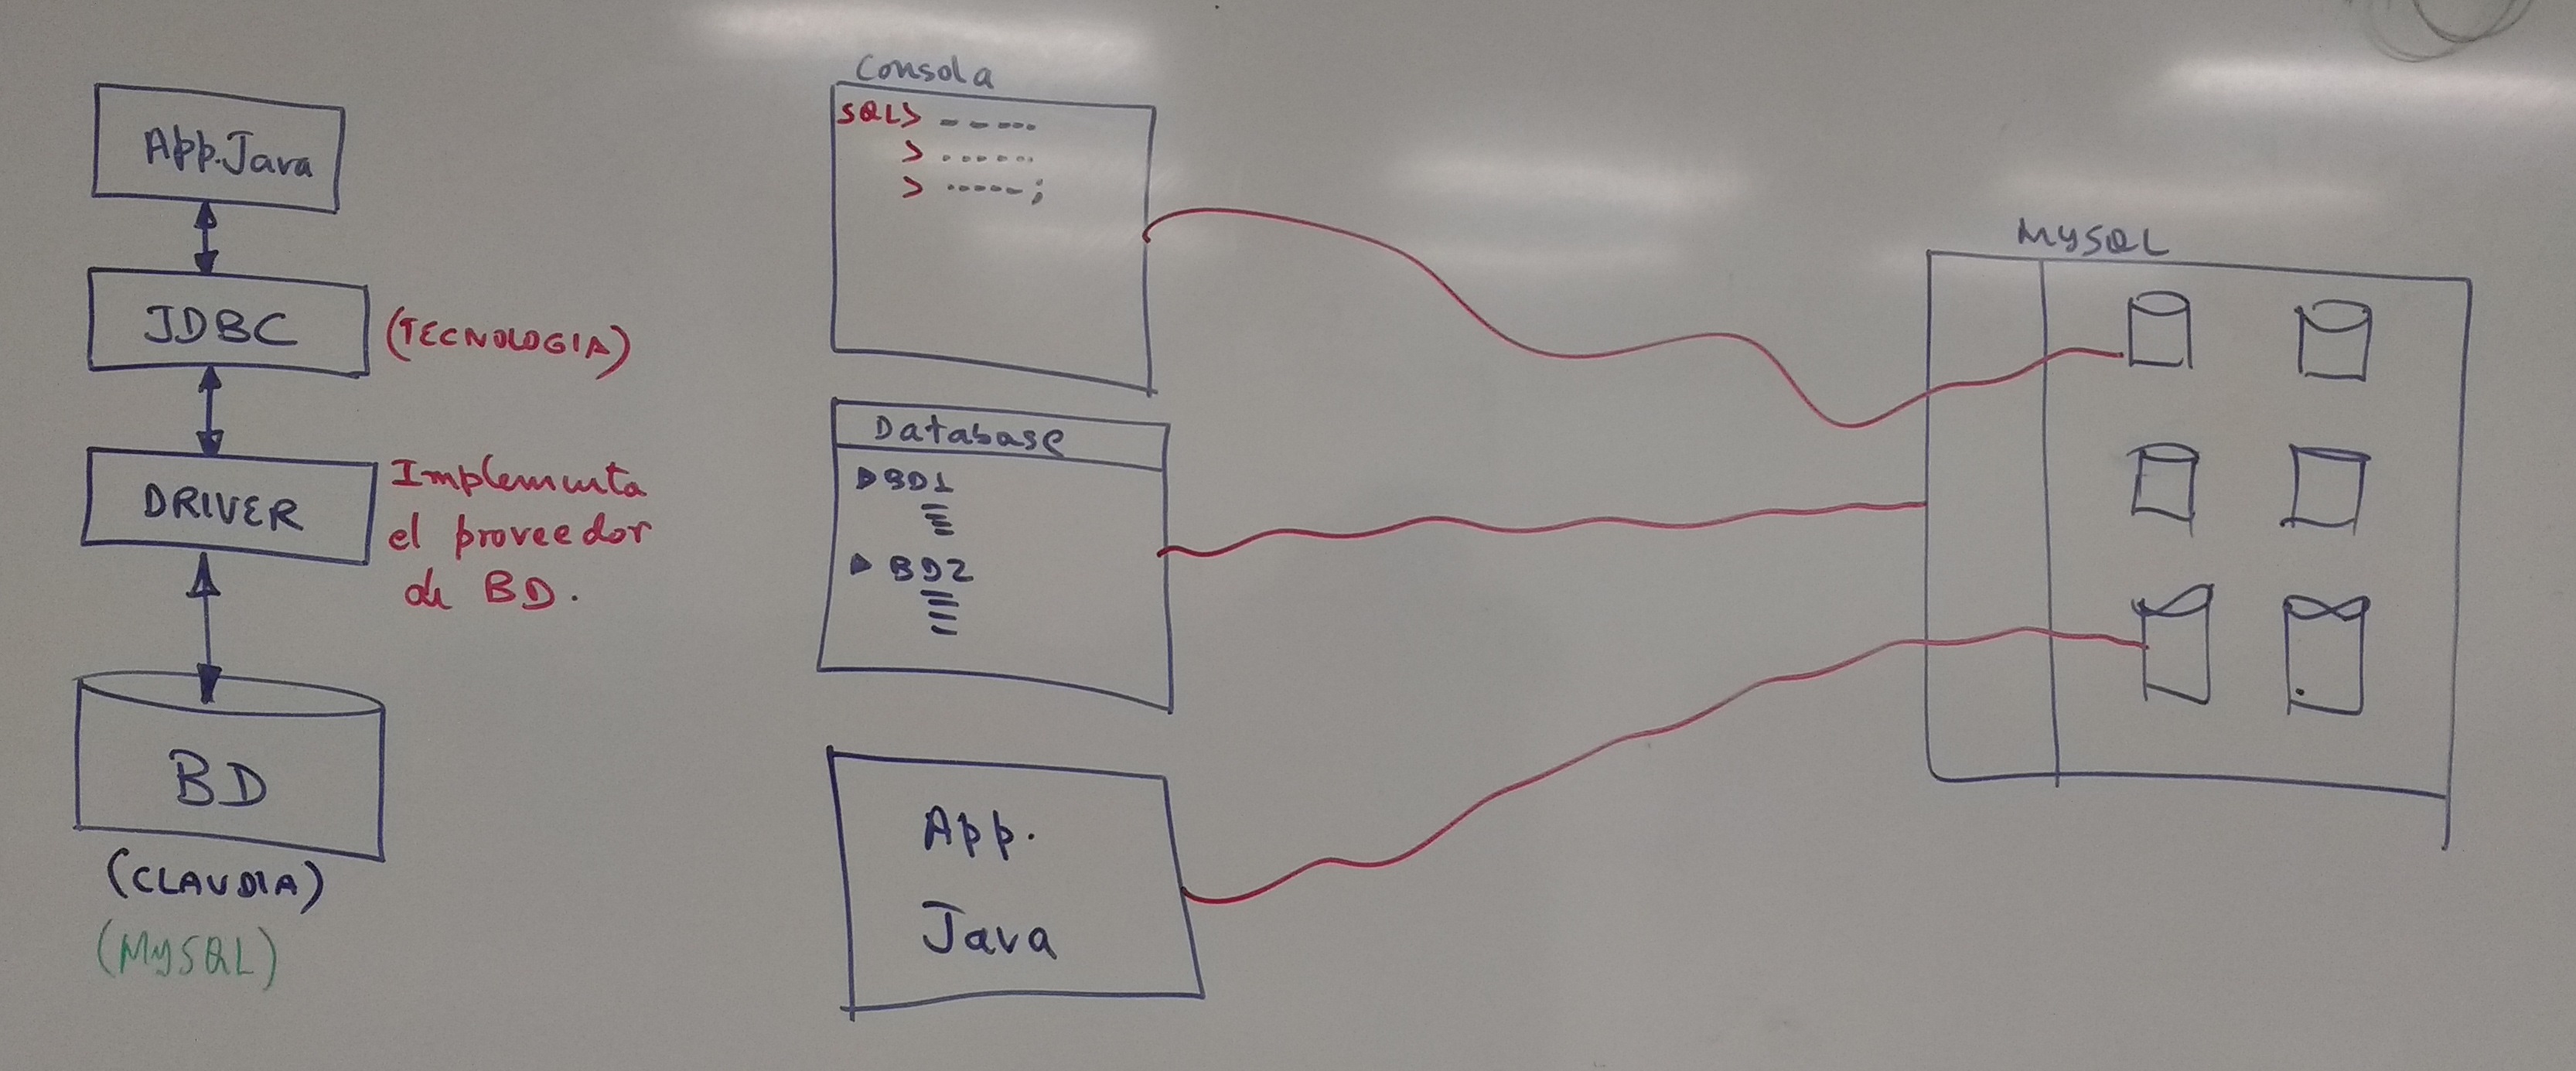 App.Java
JDBC
(TECNOLOGIA)
DRIVER
Implementa
el proveedor
de BD.
BD
(CLAUDIA)
(MySQL)
Consola
SQL> -----
> ......
> ------;
Database
▶ BD1
▶ BD2
App.
Java
MySQL